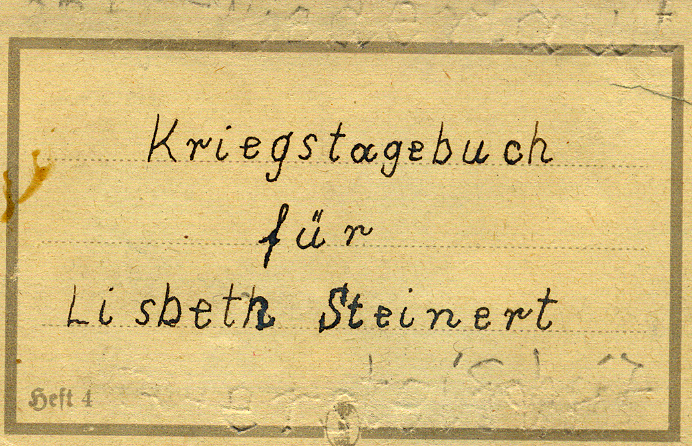 Kriegstagebuch
für
Lisbeth Steinert
Heft 4